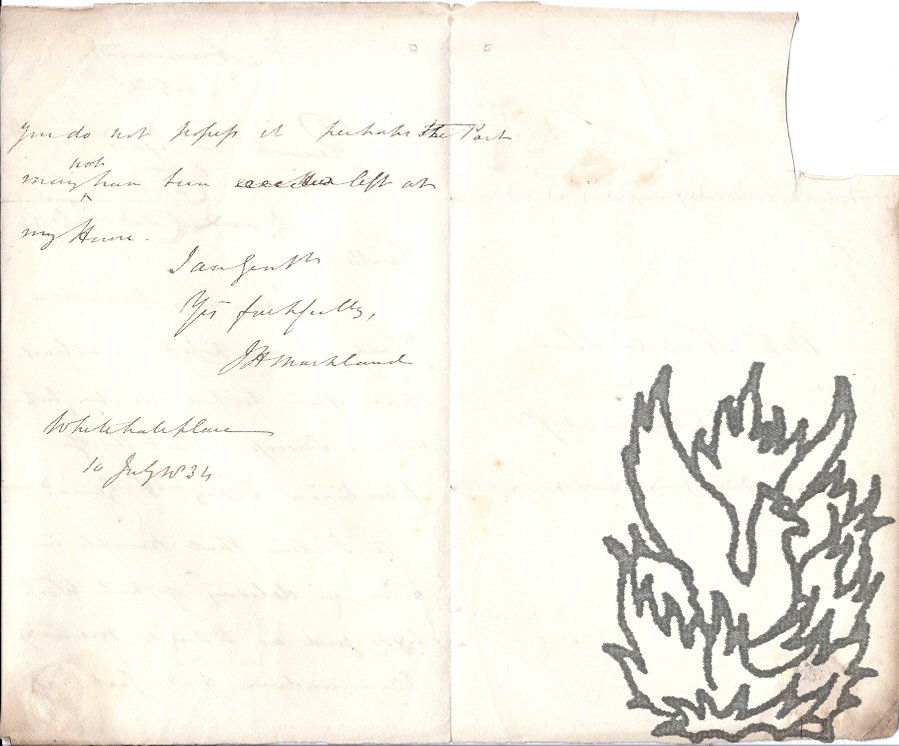 You do not possess it perhaps the Part
may not have been left at
my House.
I am Gentn
Yrs faithfully,
JHMarkland
Whitehall Place
10 July 1834